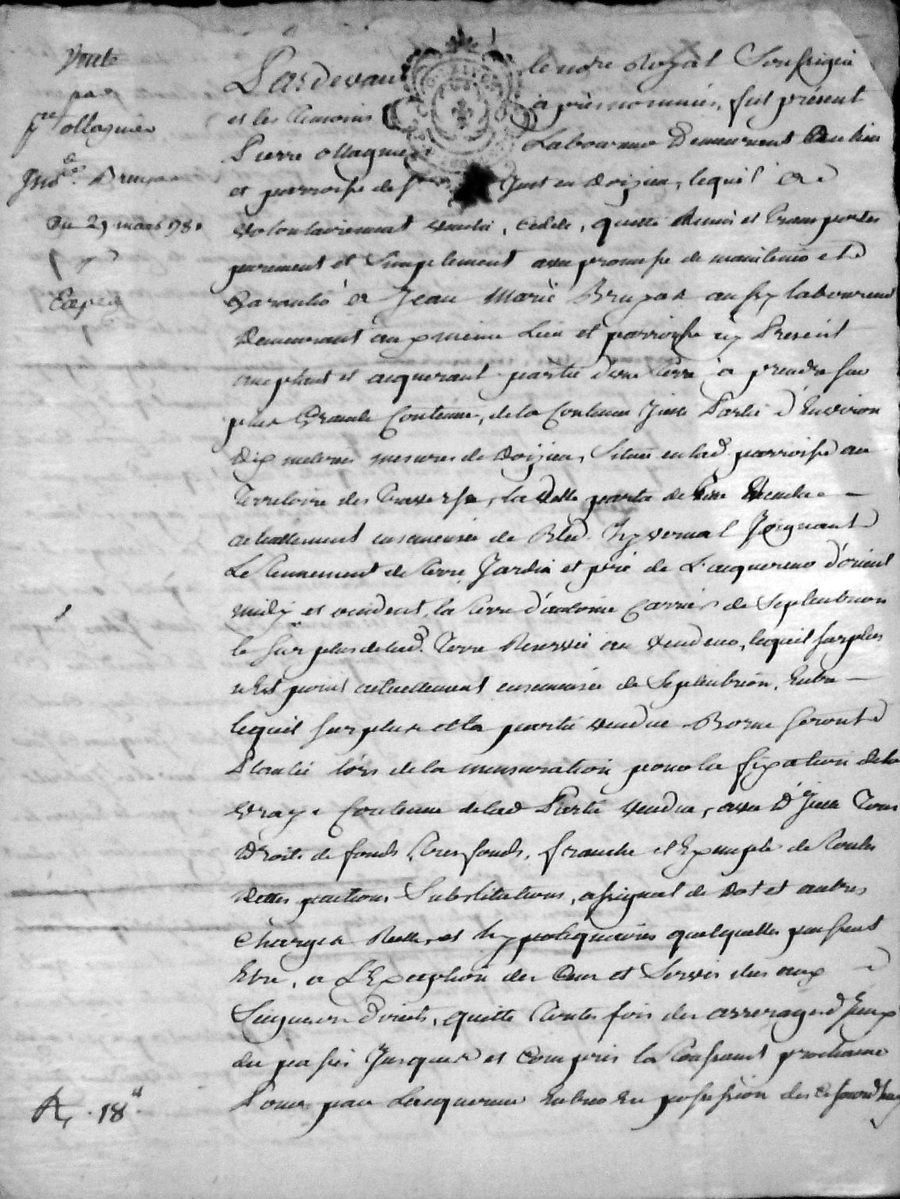 Vente
par
pre ollagnier
du 29 mars 178
Expéd
R. 18#.
Pardevant le notre Royal Soussigné
et les témoins après nommés, fut présent
Pierre ollagnier Laboureur Demeurant au lieu
et parroisse de St Just en doizieu, lequel a
volontairement vendu, cédé, quitté Remis et transporté
purement et Simplement avec promesse de maintenir et
Garantir à Jean Marie aussy laboureur
Demeurant aux même Lieu et parroisse icy Présent
acceptant et acquerant partie d'une terre à prendre sur
plus Grande Contenue, de la Contenue Jcelle Partie d'Environ
dix metres mesures de doizieu, Située en lad. parroisse au
Territoire des Traverses, la dite partie de terre vendue
actuellement ensemencée de Bled hyvernal Joignant
Le tennement de terre Jardin et pré de L'acquereur d'orient
midy et occident, la terre d'antoine de Septentrion
le Surplus de lad. Terre Reservée au vendeur, lequel surplus
n'est point actuellement ensemencée de Septentrion, Entre
lequel surplus et la partie vendue Borne Seront
Plantée lors de la mensuration pour la fixation de la
vraye Contenue de lad Partie vendue, avec d'Jcelle Tous
droits de fonds, Tresfonds, franche et Exempte de toutes
dettes pactions Substitutions, assignat de dot et autres
Charges Réelles, et hypothequaires quelquelles puissent
Etre, a L'Exception des Cens et Servis dus aux
Seigneurs directs, quitte toutes fois des arrerages d'Jceux
du passé Jusques et compris la Toussaint prochaine
Pour par Lacquereur Entrer En possession des ce jourd'huy